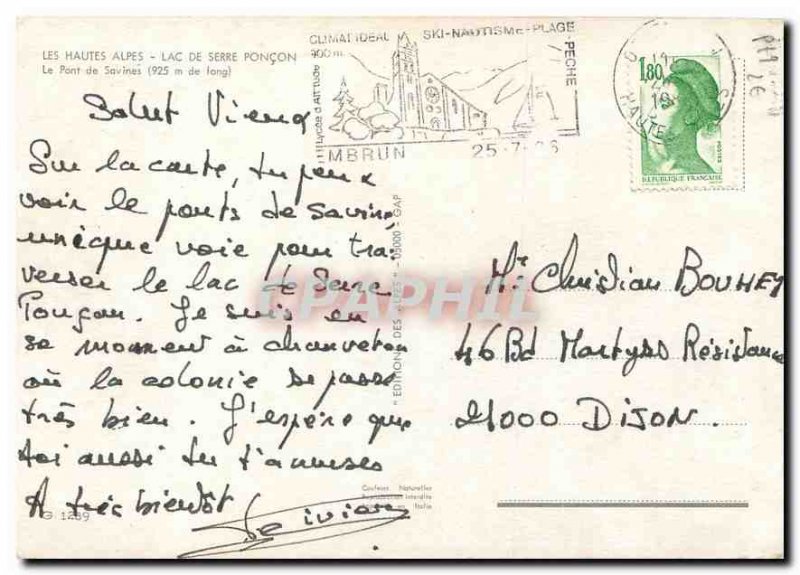 LES HAUTES ALPES - LAC DE SERRE PONÇON
Le Pont de Savines (925 m de long)
CLIMAT IDEAL SKI-NAUTISME-PLAGE
900 m
d'Altitude
Lycée
PECHE
MBRUN 25-7-86
HAUTES
1,80
POSTES
REPUBLIQUE FRANÇAISE
Salut
Sur la carte, tu peux
voir le ponts de Savine
unèque voie pour tra-
verser le lac de Serre
Ponçon. Je suis en
se moment à
où la colonie se passe
très bien. J'espère que
toi aussi tu t'amuses
A très bientôt
G 1259
"EDITIONS DES ALPES" - 05000 - GAP
CPAPHIL
Couleurs Naturelles
Reproduction Interdite
en Italie
Mr Christian BOUHEY
46 Bd Martyrs Résistance
21000 DIJON.